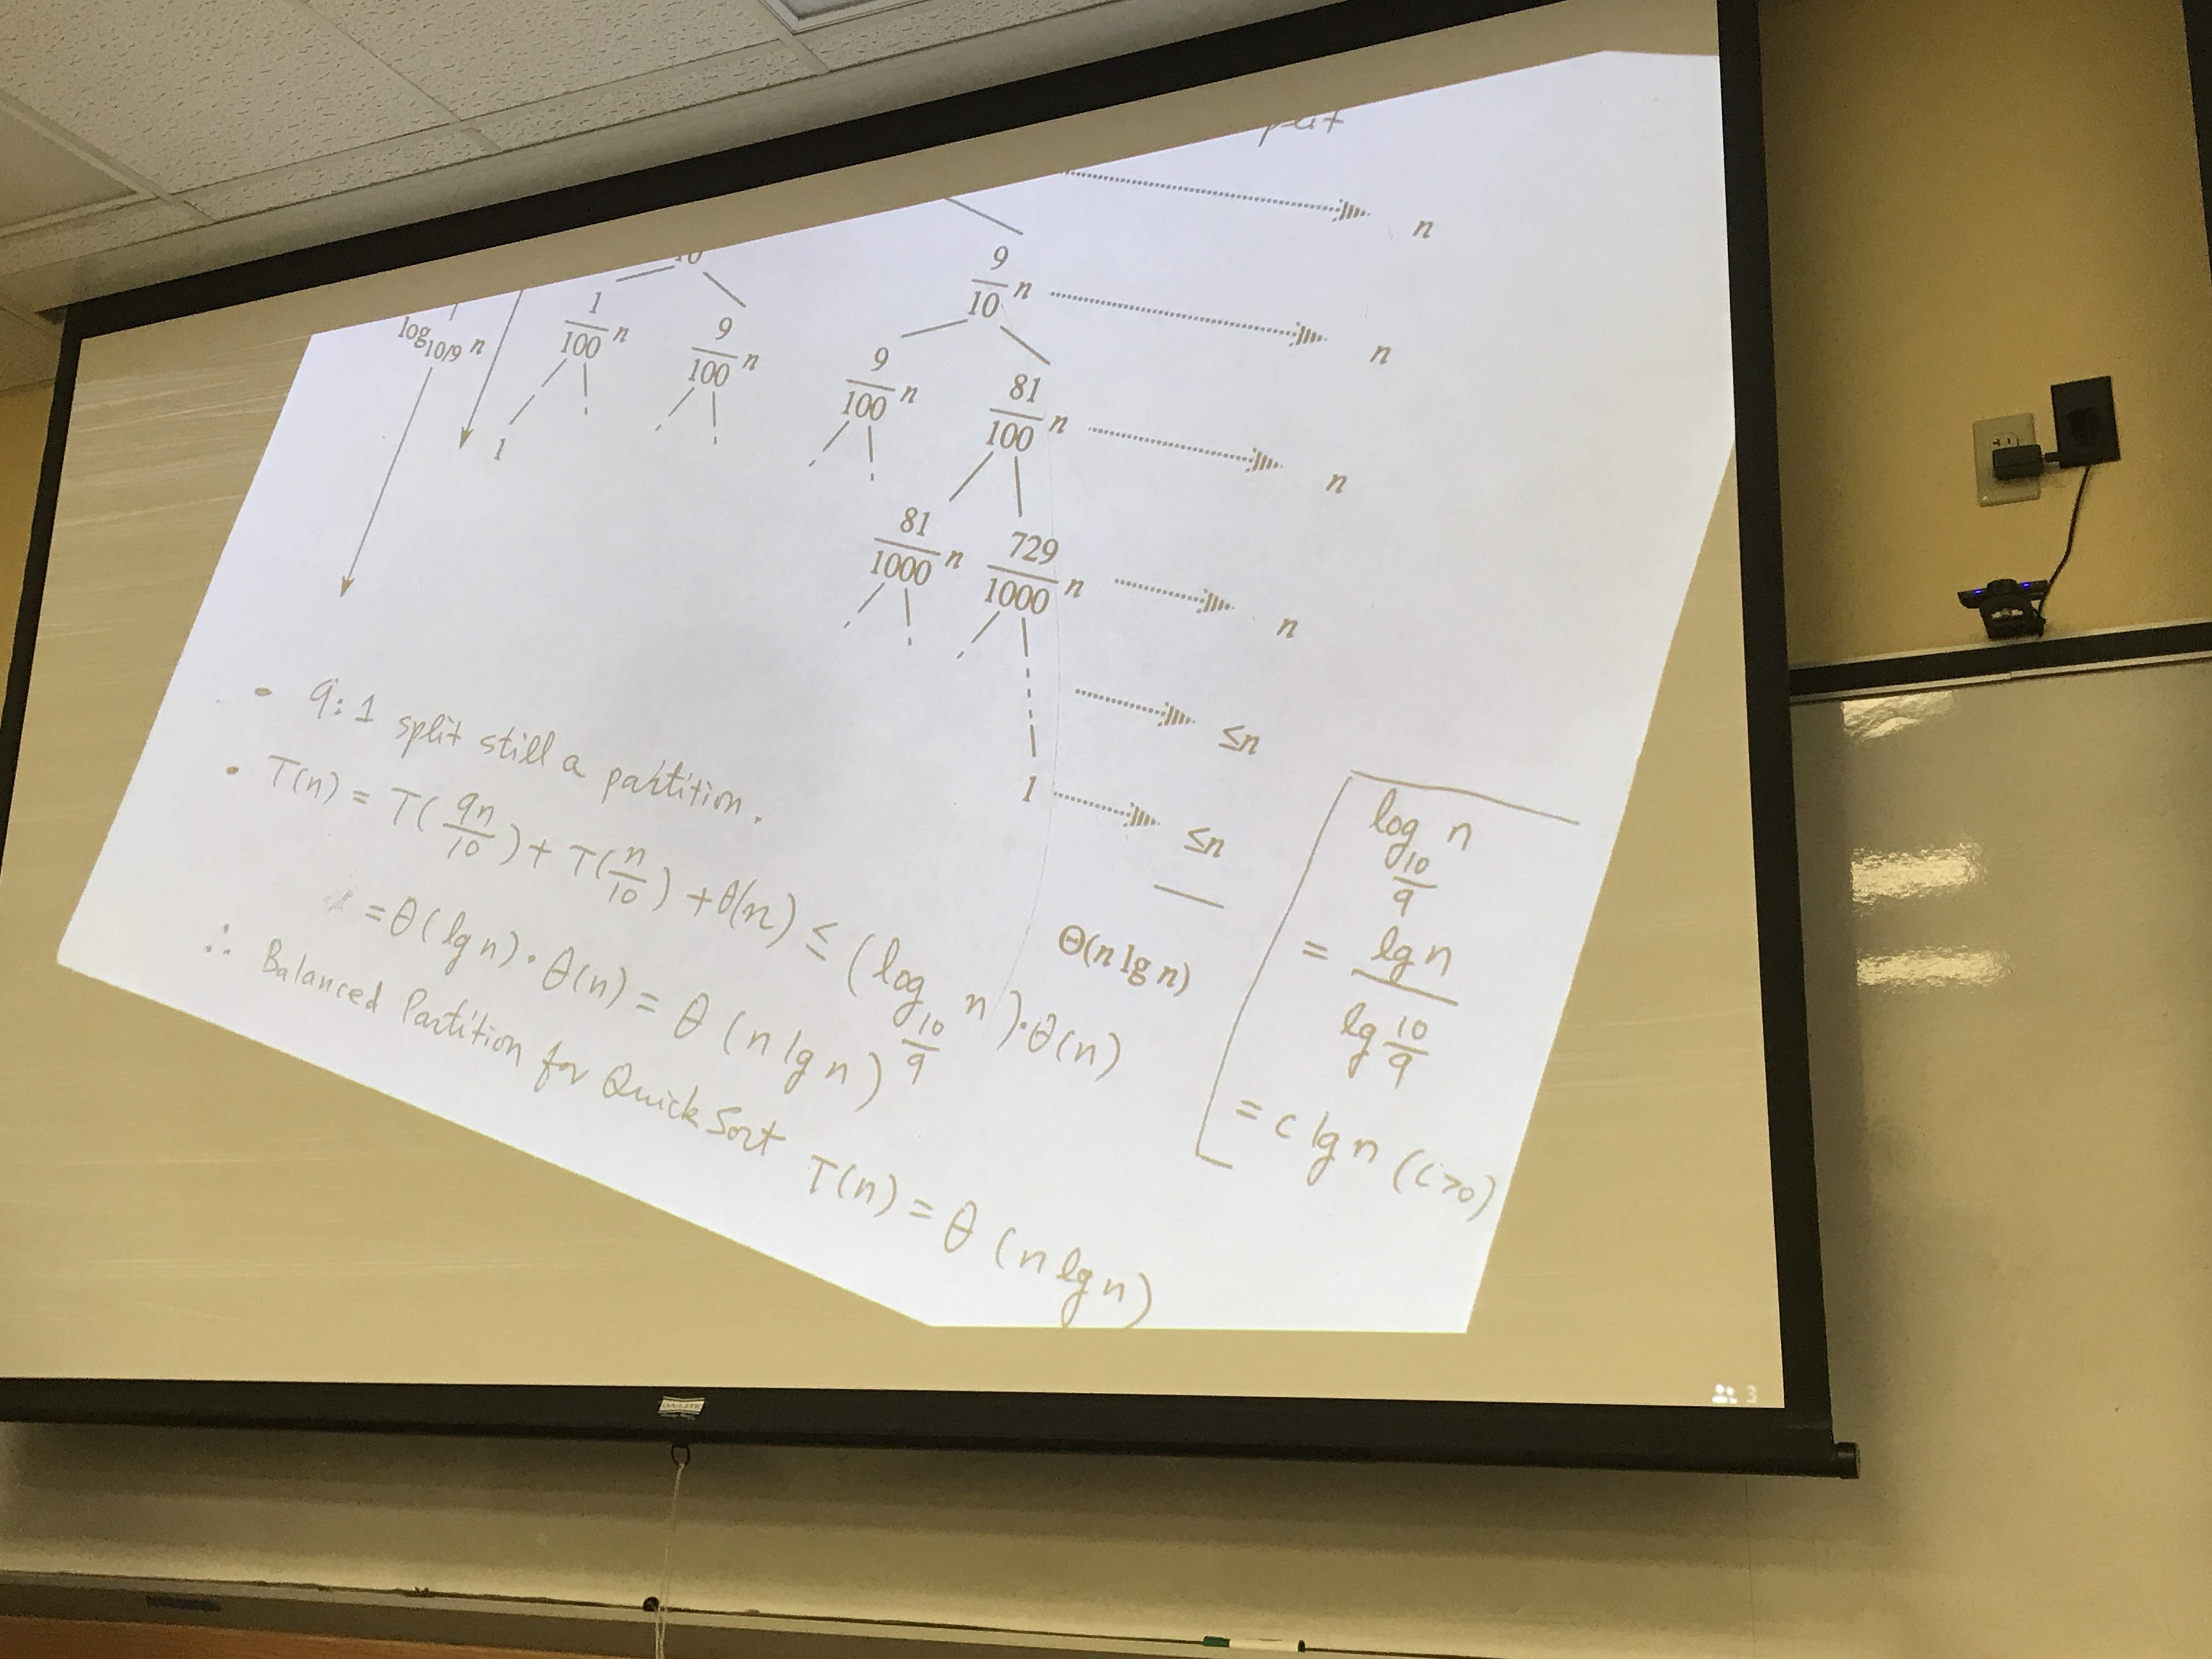 n
9/10 n
n
log10/9 n
1/100 n
9/100 n
9/100 n
81/100 n
n
1
81/1000 n
729/1000 n
n
≤n
1
≤n
Θ(n lg n)
• 9:1 split still a partition.
• T(n) = T(9n/10) + T(n/10) + θ(n) ≤ (log10/9 n)·θ(n)
= θ(lg n)·θ(n) = θ(n lg n)
∴ Balanced Partition for QuickSort T(n) = θ(n lg n)
log10/9 n
= lg n / lg 10/9
= c lg n (c>0)
3